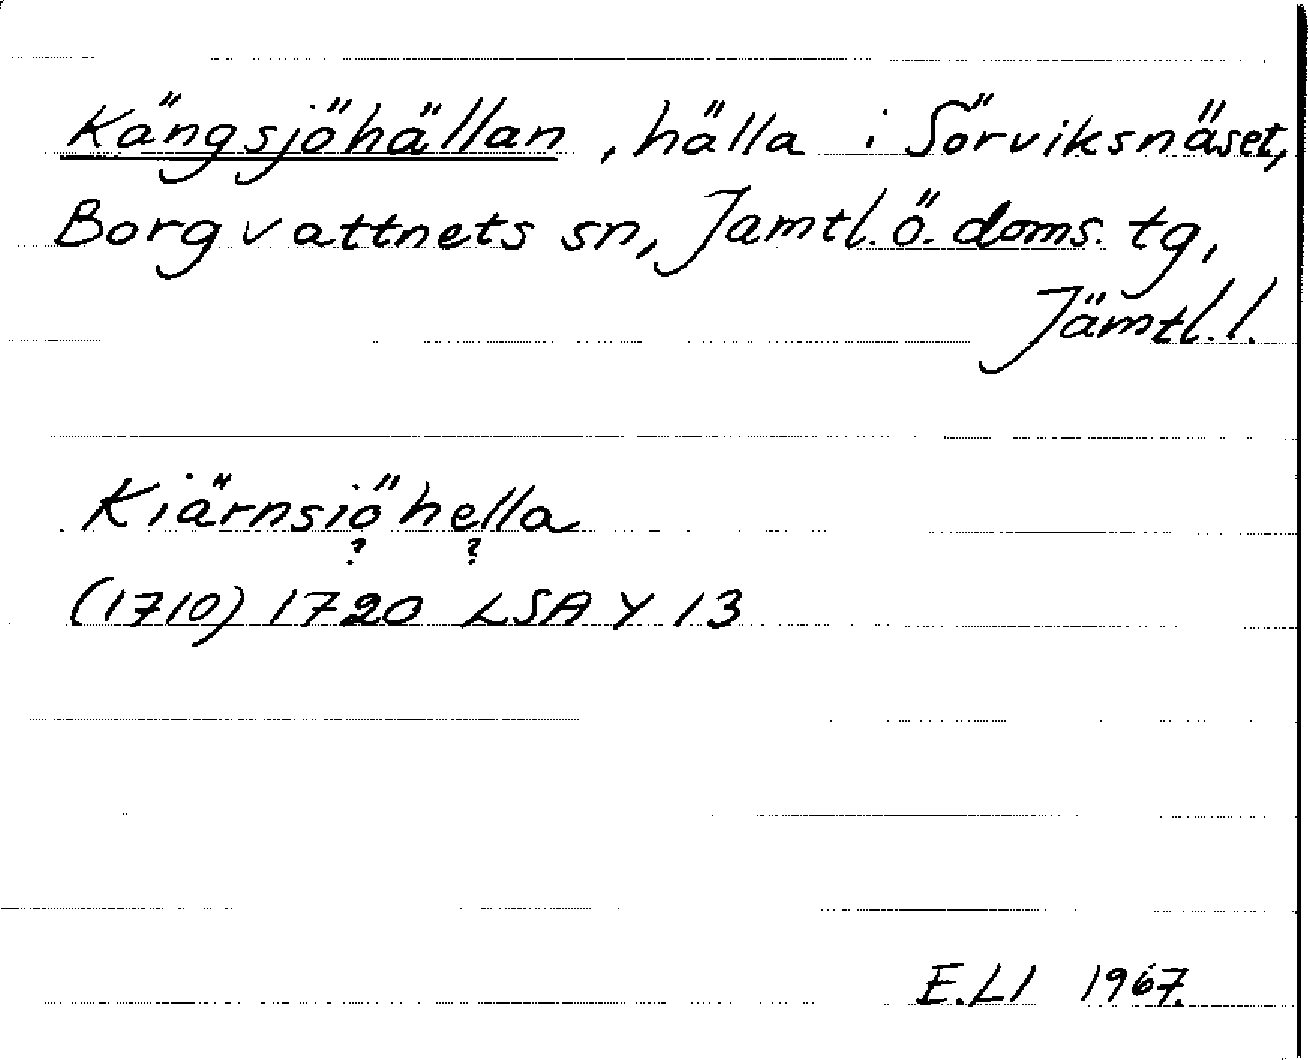 Kängsjöhällan, hälla i Sörviksnäset,
Borgvattnets sn, Jämtl. ö. doms. tg,
Jämtl. l.
Kiärnsiöhella
? ?
(1710) 1720 LSA Y 13
E.Ll 1967.